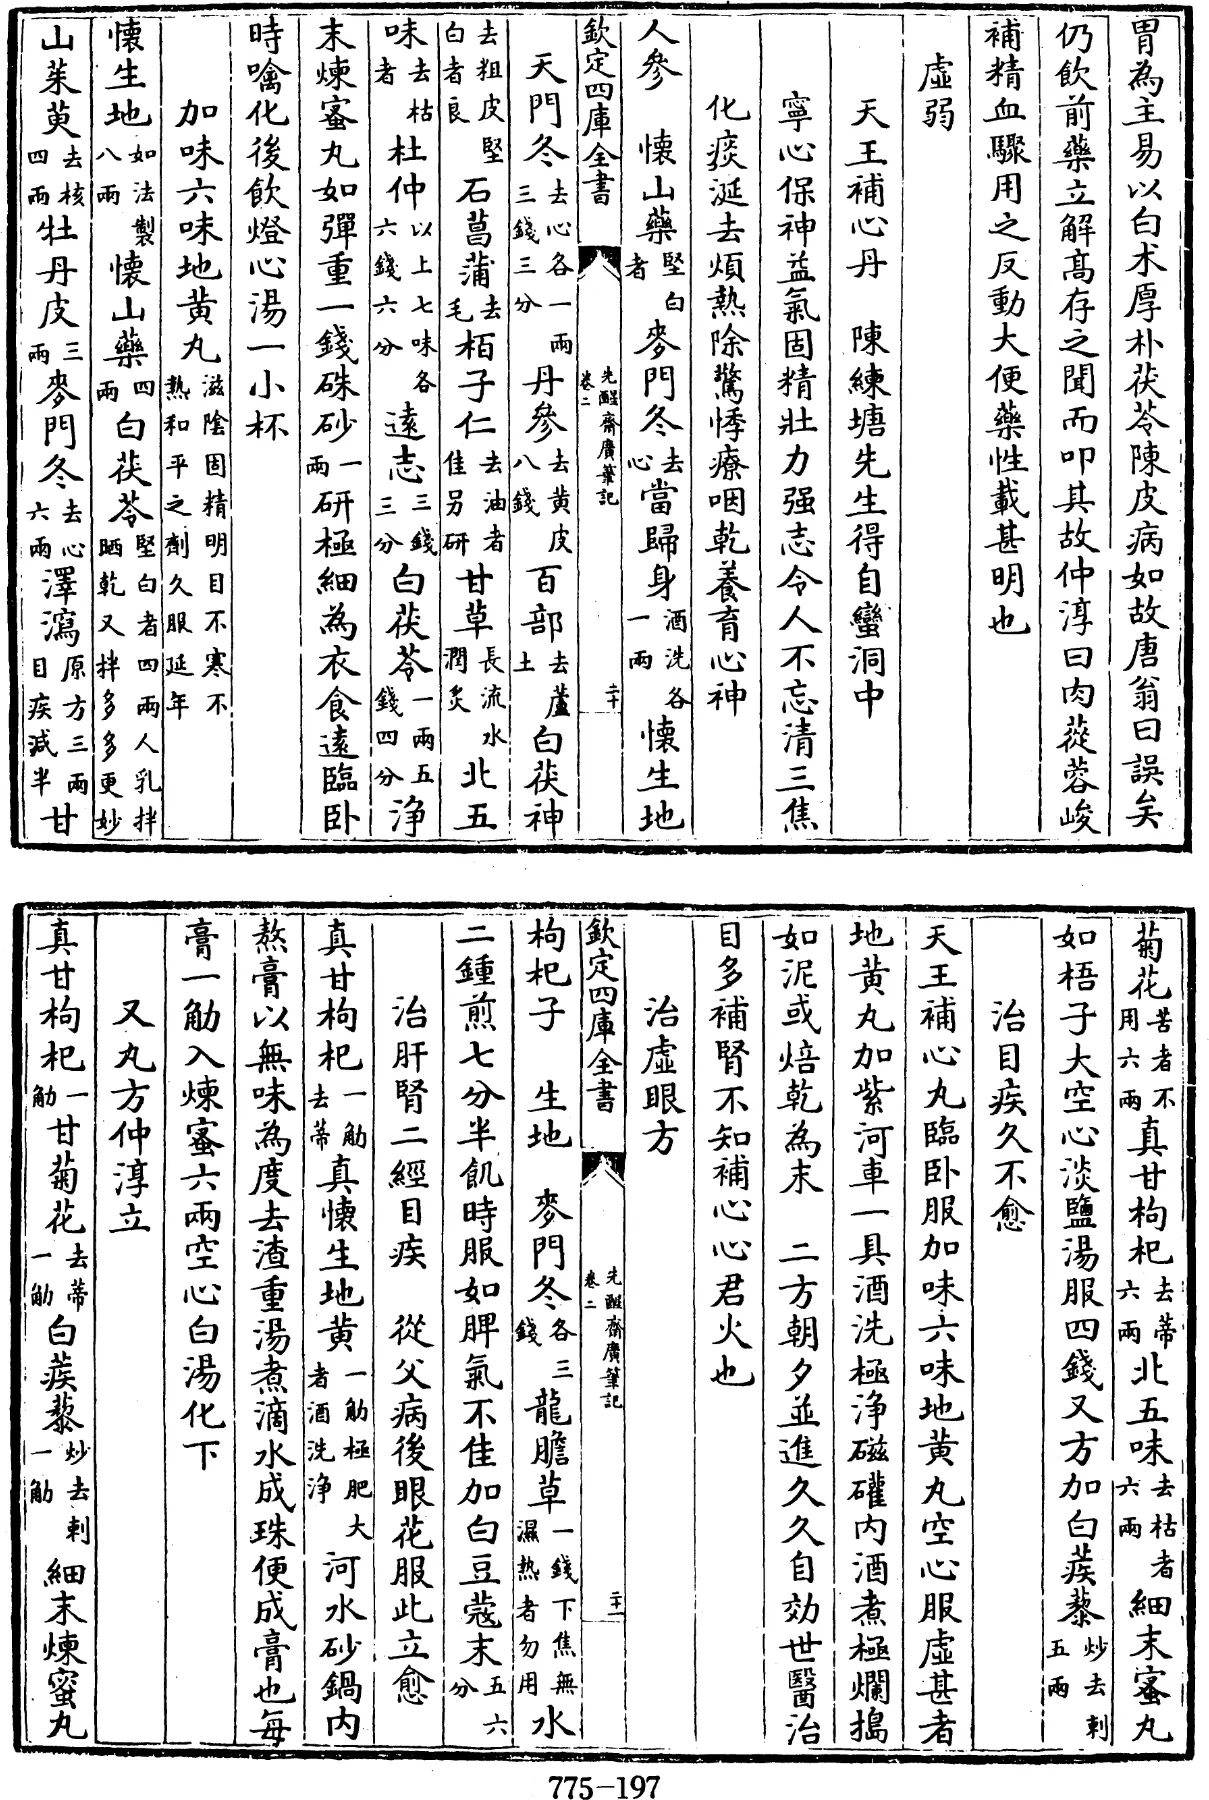 胃為主易以白术厚朴茯苓陳皮病如故唐翁曰誤矣
仍飲前藥立解髙存之聞而叩其故仲淳曰肉蓯蓉峻
補精血驟用之反動大便藥性載甚明也
虛弱
天王補心丹 陳練塘先生得自蠻洞中
寧心保神益氣固精壯力强志令人不忘清三焦
化痰涎去煩熱除驚悸療咽乾養育心神
人參 懐山藥堅白者 麥門冬去心 當歸身酒洗各一兩 懐生地
欽定四庫全書 先醒齋廣筆記卷二 二十
天門冬去心各一兩三錢三分 丹參去黄皮八錢 百部去蘆土 白茯神
去粗皮堅白者良 石菖蒲去毛 栢子仁去油者佳另研 甘草長流水潤炙 北五
味去枯者 杜仲以上七味各六錢六分 遠志三錢三分 白茯苓一兩五錢四分 浄
末煉蜜丸如彈重一錢硃砂一兩研極細為衣食遠臨卧
時噙化後飲燈心湯一小杯
加味六味地黄丸滋陰固精明目不寒不熱和平之劑久服延年
懐生地如法製八兩 懐山藥四兩 白茯苓堅白者四兩人乳拌晒乾又拌多多更妙
山茱萸去核四兩 牡丹皮三兩 麥門冬去心六兩 澤瀉原方三兩目疾減半 甘
菊花苦者不用六兩 真甘枸杞去蒂六兩 北五味去枯者六兩 細末蜜丸
如梧子大空心淡鹽湯服四錢又方加白蒺藜炒去刺五兩
治目疾久不愈
天王補心丸臨卧服加味六味地黄丸空心服虛甚者
地黄丸加紫河車一具酒洗極浄磁礶内酒煮極爛搗
如泥或焙乾為末 二方朝夕並進久久自効世醫治
目多補腎不知補心心君火也
治虛眼方
欽定四庫全書 先醒齋廣筆記卷二 二十一
枸杞子 生地 麥門冬各三錢 龍膽草一錢下焦無濕熱者勿用 水
二鍾煎七分半飢時服如脾氣不佳加白豆蔻末五六分
治肝腎二經目疾 從父病後眼花服此立愈
真甘枸杞一觔去蒂 真懐生地黄一觔極肥大者酒洗浄 河水砂鍋内
熬膏以無味為度去渣重湯煮滴水成珠便成膏也每
膏一觔入煉蜜六兩空心白湯化下
又丸方仲淳立
真甘枸杞一觔 甘菊花去蒂一觔 白蒺藜炒去刺一觔 細末煉蜜丸
775-197